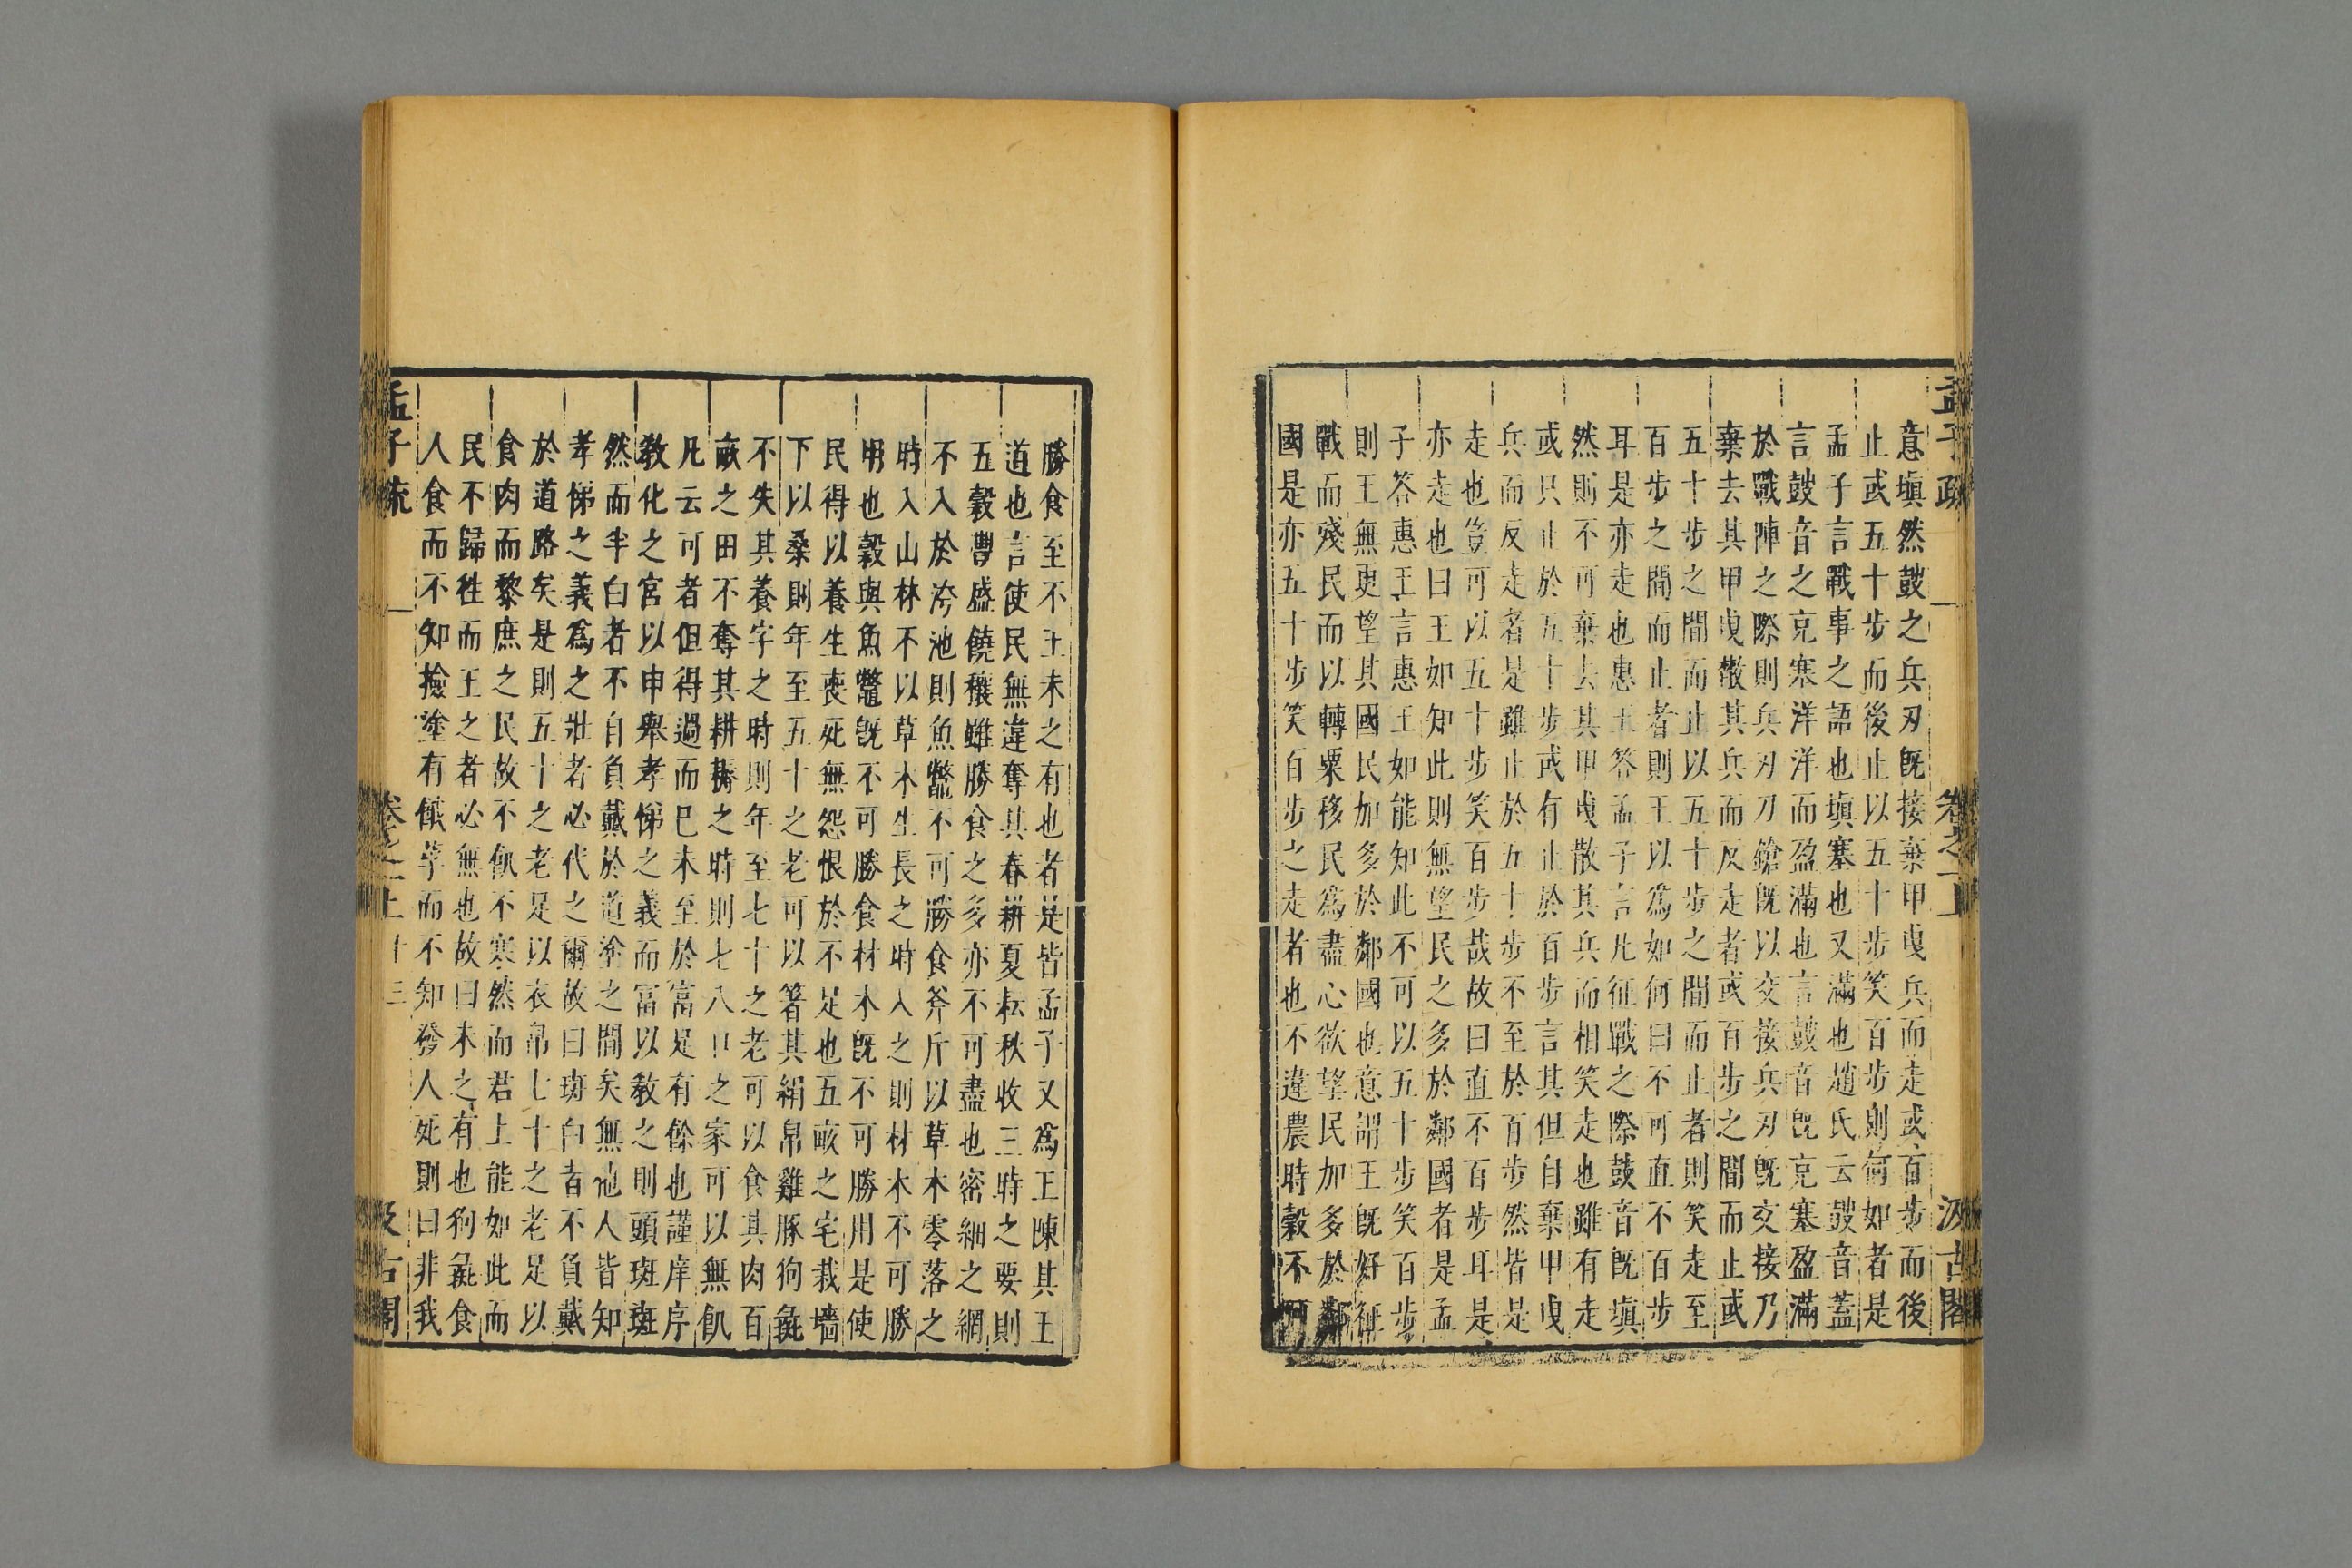 孟子疏
卷之一上
汲古閣
意塡然鼓之兵刃旣接棄甲曳兵而走或百步而後
止或五十步而後止以五十步笑百步則何如者是
孟子言戰事之語也塡塞也又滿也趙氏云鼓音蓋
言鼓音之充塞洋洋而盈滿也言鼓音旣充塞盈滿
於戰陣之際則兵刃刀鎗旣以交接兵刃旣交接乃
棄去其甲曳散其兵而反走者或百步之間而止或
五十步之間而止以五十步之間而止者則笑走至
百步之間而止者則王以爲如何曰不可直不百步
耳是亦走也惠王答孟子言凡征戰之際鼓音旣塡
然則不可棄去其甲曳散其兵而相笑走也雖有走
或只止於五十步或有止於百步言其但自棄甲曳
兵而反走者是雖止於五十步不至於百步然皆是
走也豈可以五十步笑百步哉故曰直不百步耳是
亦走也曰王如知此則無望民之多於鄰國者是孟
子答惠王言惠王如能知此不可以五十步笑百步
則王無更望其國民加多於鄰國也意謂王旣好征
戰而殘民而以轉粟移民爲盡心欲望民加多於鄰
國是亦五十步笑百步之走者也不違農時穀不可
勝食至不王未之有也者是皆孟子又爲王陳其王
道也言使民無違奪其春耕夏耘秋收三時之要則
五穀豐盛饒穰雖勝食之多亦不可盡也密細之網
不入於洿池則魚鼈不可勝食斧斤以草木零落之
時入山林不以草木生長之時入之則材木不可勝
用也穀與魚鼈旣不可勝食材木旣不可勝用是使
民得以養生喪死無怨恨於不足也五畝之宅栽墻
下以桑則年至五十之老可以著其絹帛雞豚狗彘
不失其養字之時則年至七十之老可以食其肉百
畝之田不奪其耕耨之時則七八口之家可以無飢
凡云可者但得過而已未至於富足有餘也謹庠序
教化之宮以申舉孝悌之義而富以教之則頭斑斑
然而半白者不自負戴於道塗之間矣無他人皆知
孝悌之義爲之壯者必代之爾故曰斑白者不負戴
於道路矣是則五十之老足以衣帛七十之老足以
食肉而黎庶之民故不飢不寒然而君上能如此而
民不歸往而王之者必無也故曰未之有也狗彘食
人食而不知撿塗有餓莩而不知發人死則曰非我
孟子疏
卷之一上
十三
汲古閣